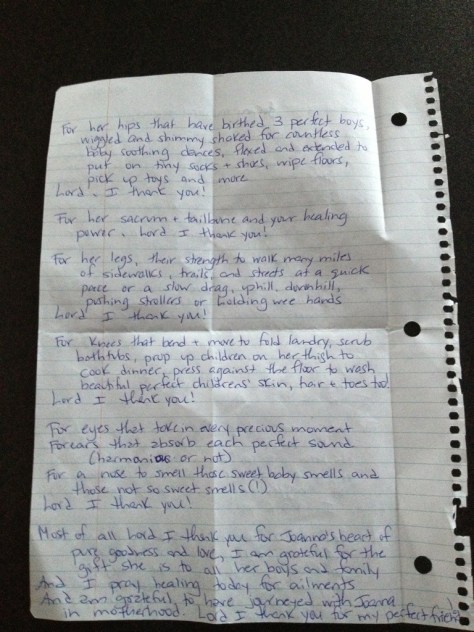 For her hips that have birthed 3 perfect boys,
wiggled and shimmy shaked for countless
baby soothing dances, flexed and extended to
put on tiny socks + shoes, wipe floors,
pick up toys and more
Lord, I thank you!
For her sacrum + tailbone and your healing
power, Lord I thank you!
For her legs, their strength to walk many miles
of sidewalks, trails, and streets at a quick
pace or a slow drag, uphill, downhill,
pushing strollers or holding wee hands
Lord I thank you!
For knees that bend + move to fold laundry, scrub
bathtubs, prop up children on her thigh to
cook dinner, press against the floor to wash
beautiful perfect childrens' skin, hair + toes too!
Lord I thank you!
For eyes that take in every precious moment
For ears that absorb each perfect sound
(harmonious or not)
For a nose to smell those sweet baby smells and
those not so sweet smells (!)
Lord I thank you!
Most of all Lord I thank you for Joanna's heart of
pure goodness and love, I am grateful for the
gift she is to all her boys and family
And I pray healing today for ailments
And am grateful to have journeyed with Joanna
in motherhood. Lord I thank you for my perfect friend